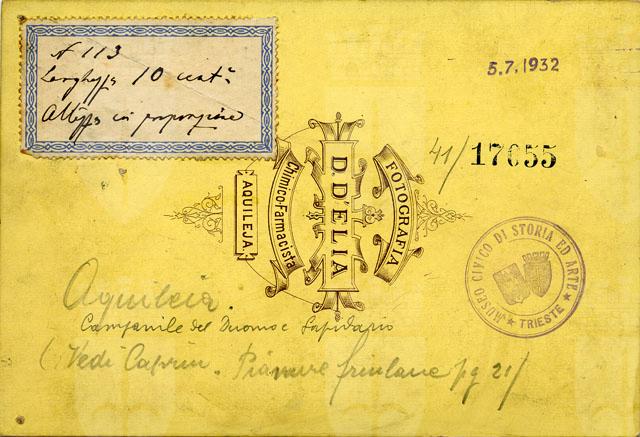 N 113
Larghezza 10 cent.
Altezza in proporzione
5.7.1932
41/17655
FOTOGRAFIA
D. D'ELIA
Chimico-Farmacista
AQUILEJA.
MUSEO CIVICO DI STORIA ED ARTE
TRIESTE
Aquileia.
Campanile del Duomo e Lapidario
(Vedi Caprin. Pianure friulane pg 21/